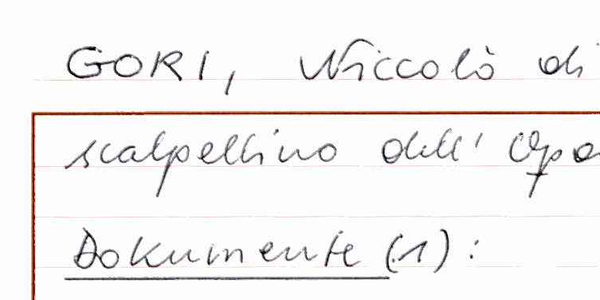 GORI, Niccolò di
scalpellino dell' Opa
Dokumente (1):